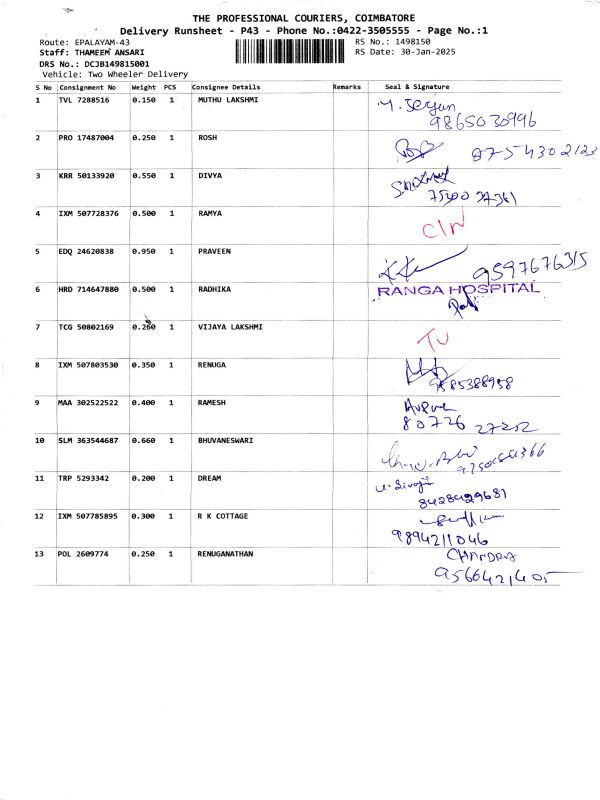 THE PROFESSIONAL COURIERS, COIMBATORE
Delivery Runsheet - P43 - Phone No.:0422-3505555 - Page No.:1
Route: EPALAYAM-43 RS No.: 1498150
Staff: THAMEEM ANSARI RS Date: 30-Jan-2025
DRS No.: DCJB149815001
Vehicle: Two Wheeler Delivery
S No Consignment No Weight PCS Consignee Details Remarks Seal & Signature
1 TVL 7288516 0.150 1 MUTHU LAKSHMI
9865030996
2 PRO 17487004 0.250 1 ROSH 8754302123
3 KRR 50133920 0.550 1 DIVYA
4 IXM 507728376 0.500 1 RAMYA
5 EDQ 24620838 0.950 1 PRAVEEN 9597676315
6 HRD 714647880 0.500 1 RADHIKA RANGA HOSPITAL
7 TCG 50802169 0.260 1 VIJAYA LAKSHMI
8 IXM 507803530 0.350 1 RENUGA
9585388958
9 MAA 302522522 0.400 1 RAMESH
80726 27252
10 SLM 363544687 0.660 1 BHUVANESWARI
11 TRP 5293342 0.200 1 DREAM
8428429681
12 IXM 507785895 0.300 1 R K COTTAGE
9894211046
13 POL 2609774 0.250 1 RENUGANATHAN CHANDRA
9566421405